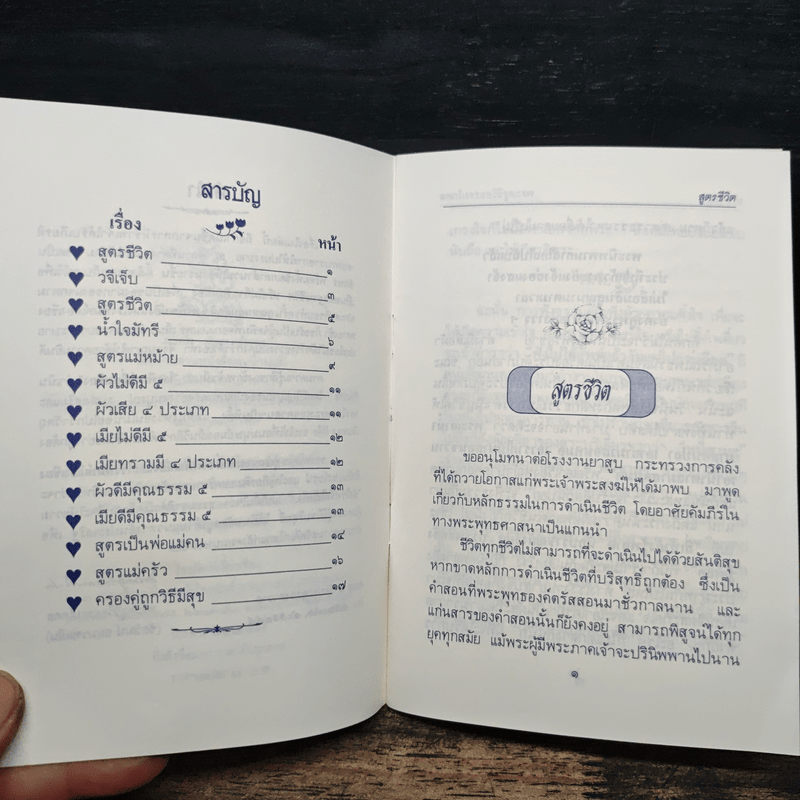 สารบัญ
เรื่อง
หน้า
สูตรชีวิต ๑
วจีเจ็บ ๓
สูตรชีวิต ๕
น้ำใจมัทรี
สูตรแม่หม้าย ๙
ผัวไม่ดีมี ๕ ๑๑
ผัวเสีย ๔ ประเภท ๑๑
เมียไม่ดีมี ๕ ๑๒
เมียทรามมี ๔ ประเภท ๑๒
ผัวดีมีคุณธรรม ๕ ๑๓
เมียดีมีคุณธรรม ๕ ๑๓
สูตรเป็นพ่อแม่คน ๑๔
สูตรแม่ครัว ๑๖
ครองคู่ถูกวิธีมีสุข ๑๗
สูตรชีวิต
สูตรชีวิต
ขออนุโมทนาต่อโรงงานยาสูบ กระทรวงการคลัง
ที่ได้ถวายโอกาสแก่พระเจ้าพระสงฆ์ให้ได้มาพบ มาพูด
เกี่ยวกับหลักธรรมในการดำเนินชีวิต โดยอาศัยคัมภีร์ใน
ทางพระพุทธศาสนาเป็นแกนนำ
ชีวิตทุกชีวิตไม่สามารถที่จะดำเนินไปได้ด้วยสันติสุข
หากขาดหลักการดำเนินชีวิตที่บริสุทธิ์ถูกต้อง ซึ่งเป็น
คำสอนที่พระพุทธองค์ตรัสสอนมาชั่วกาลนาน และ
แก่นสารของคำสอนนั้นก็ยังคงอยู่ สามารถพิสูจน์ได้ทุก
ยุคทุกสมัย แม้พระผู้มีพระภาคเจ้าจะปรินิพพานไปนาน
๑